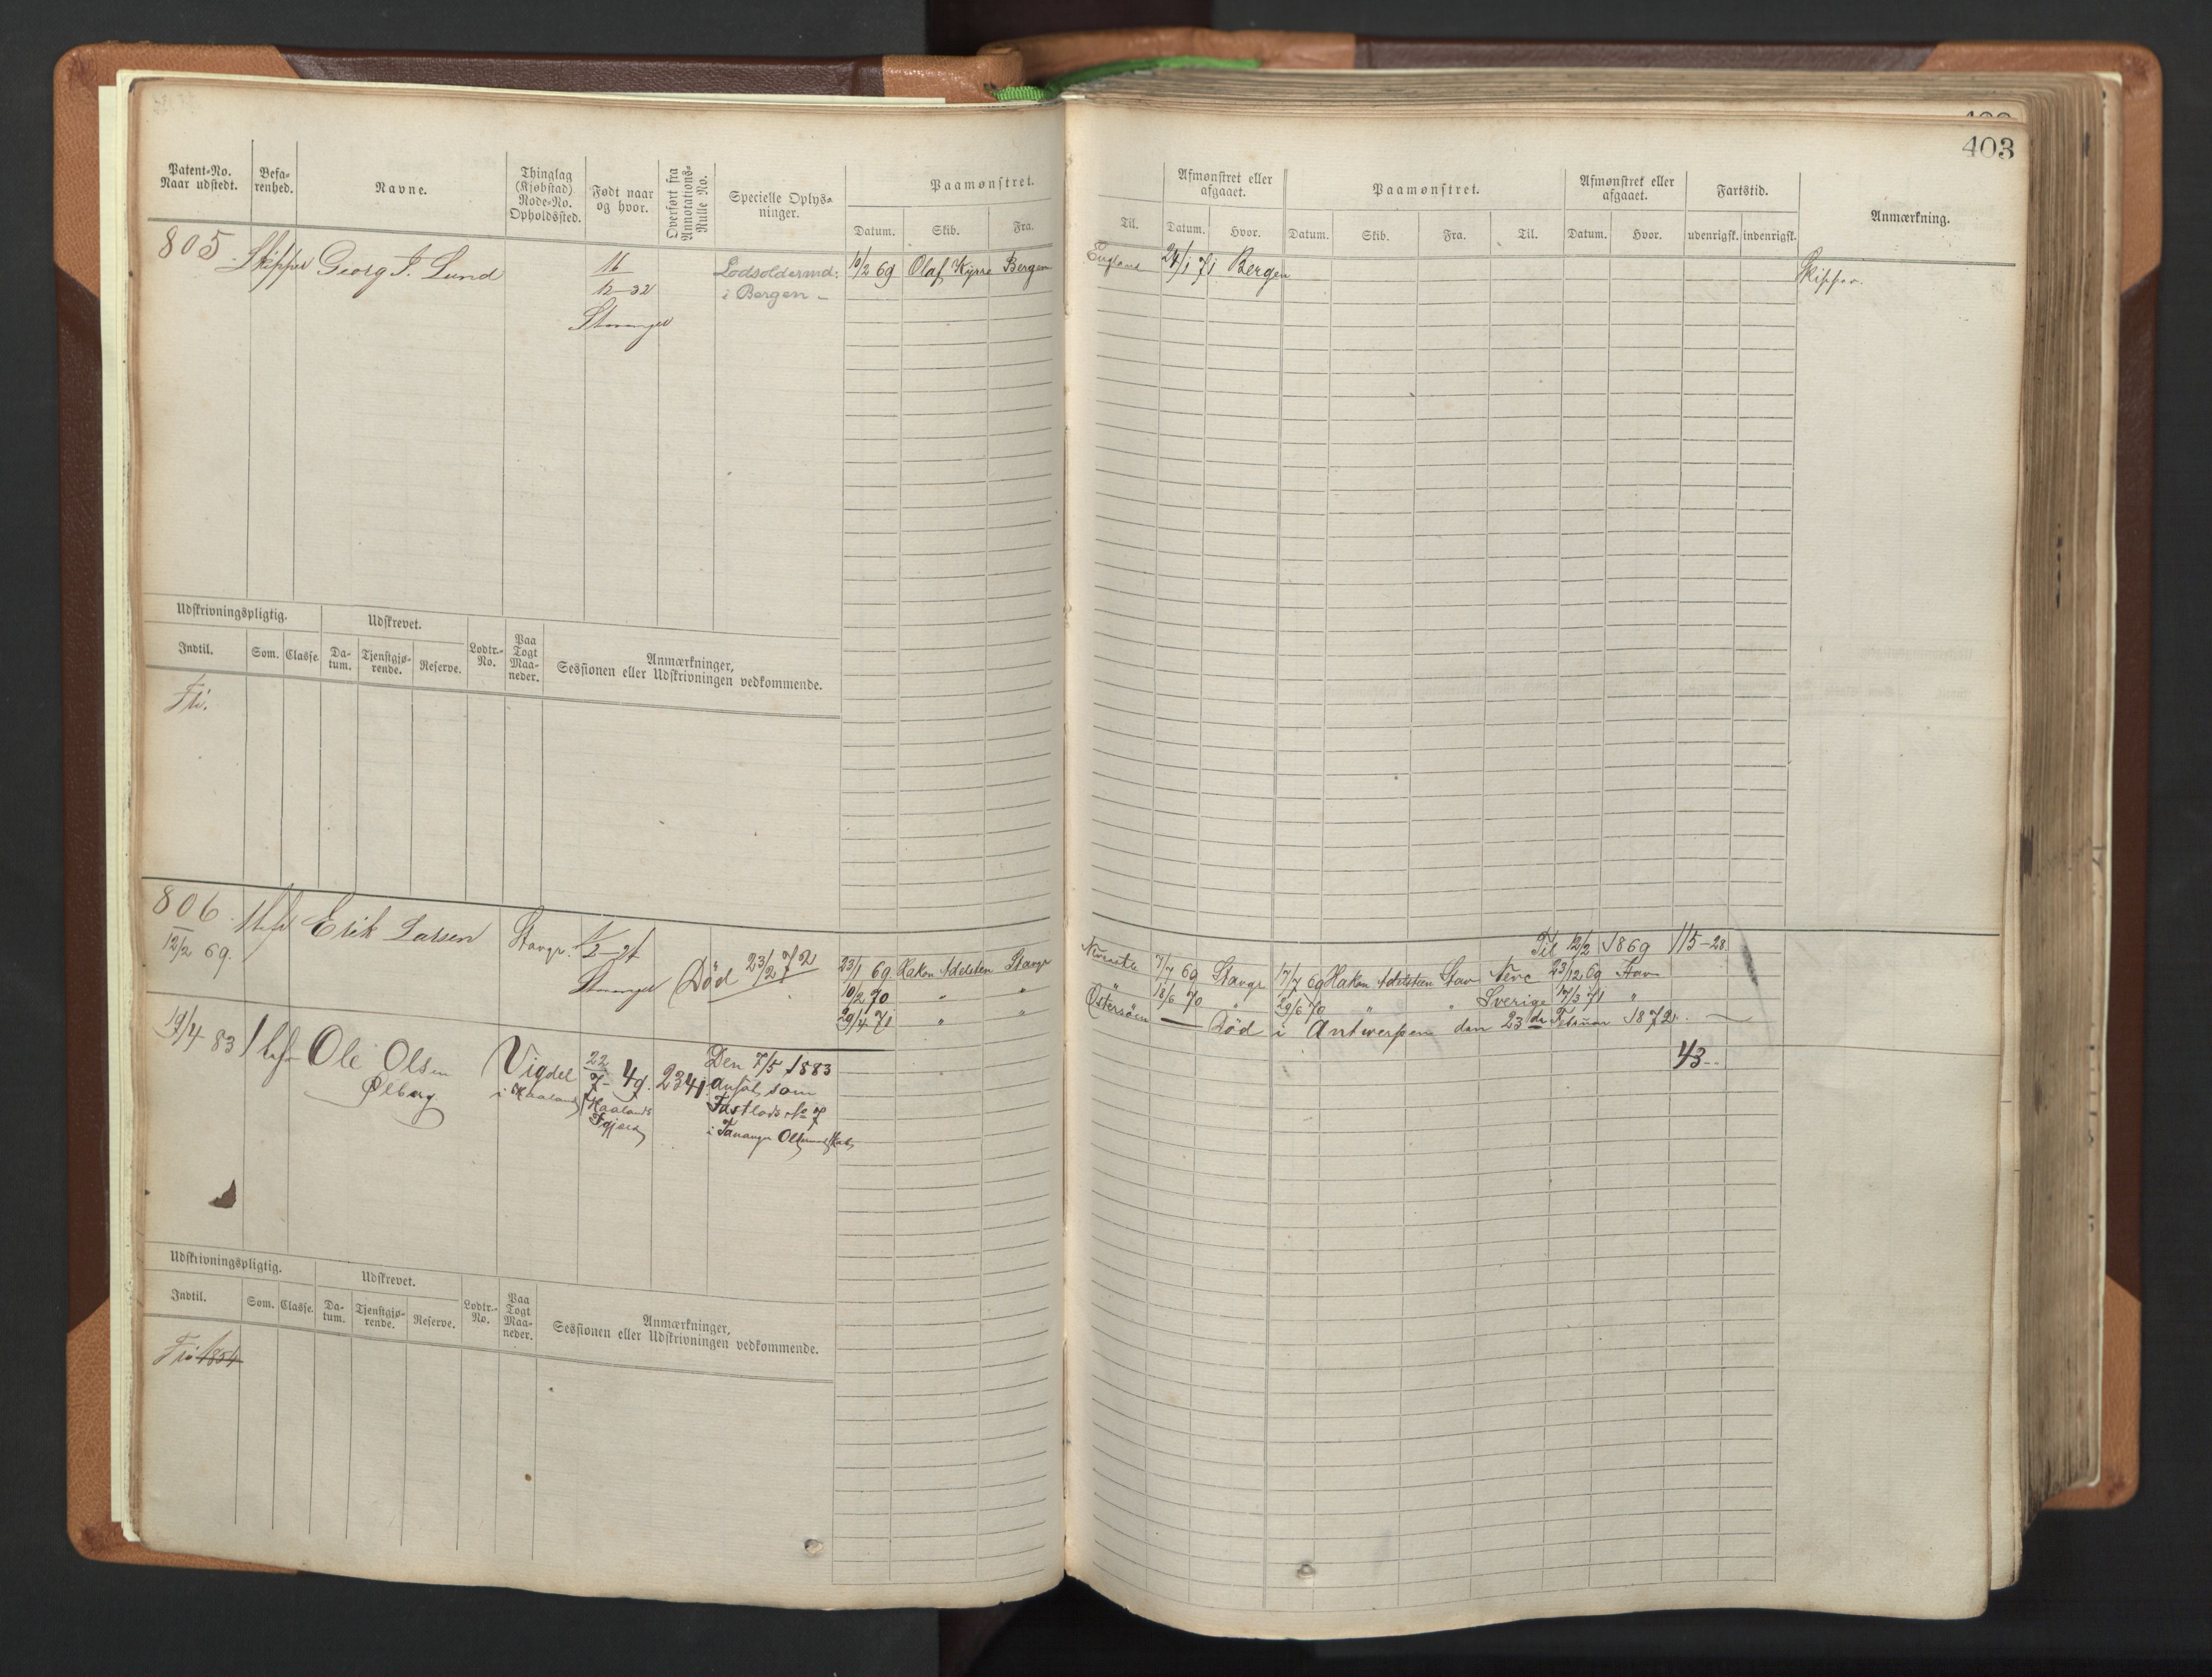 403
Patent-No. Naar udstedt. Befa-renhed. Navne. Thinglag (Kjøbstad) Rode-No. Opholdssted. Født naar og hvor. Overført fra Annotations-Rulle No. Specielle Oplys-ninger. Paamønstret. Datum. Skib. Fra.
Til. Afmønstret eller afgaaet. Datum. Hvor. Paamønstret. Datum. Skib. Fra. Til. Afmønstret eller afgaaet. Datum. Hvor. Fartstid. udenrigsk. indenrigsk. Anmærkning.
805 Skipper Georg J. Lund 16 Lodsoldermd: 10/2 69 Olaf Kyrre Bergen England 24/1 71 Bergen Skipper.
12-32 i Bergen
Stavanger
Udskrivningspligtig. Udskrevet. Lodtr.-No. Paa Togt Maa-neder. Anmærkninger, Sessionen eller Udskrivningen vedkommende.
Indtil. Som. Classe. Da-tum. Tjenstgjø-rende. Reserve.
Fri.
806 Erik Larsen Stavgr. Til 12/2 1869 115-28
12/2 69. Stavanger Død 23/2 72 23/1 69 Hakon Adelsten Stavgr 7/7 69 Stavgr 17/7 69 Hakon Adelsteen Stav 23/12 69 Stav
10/2 70 " " " 18/6 70 " 29/6 70 " " Sverige 17/3 71 "
29/4 71 " " Østersøen — Død i Antwerpen den 23de Februar 1872.
43
19/4 83 Ole Olsen Vigdel 22/7-49. 2341 Den 7/5 1883
Ølberg i Haaland Haalands ansat som
Fastlods No 7
i Tananger
Udskrivningspligtig. Udskrevet. Lodtr.-No. Paa Togt Maa-neder. Anmærkninger, Sessionen eller Udskrivningen vedkommende.
Indtil. Som. Classe. Da-tum. Tjenstgjø-rende. Reserve.
Fri 1854